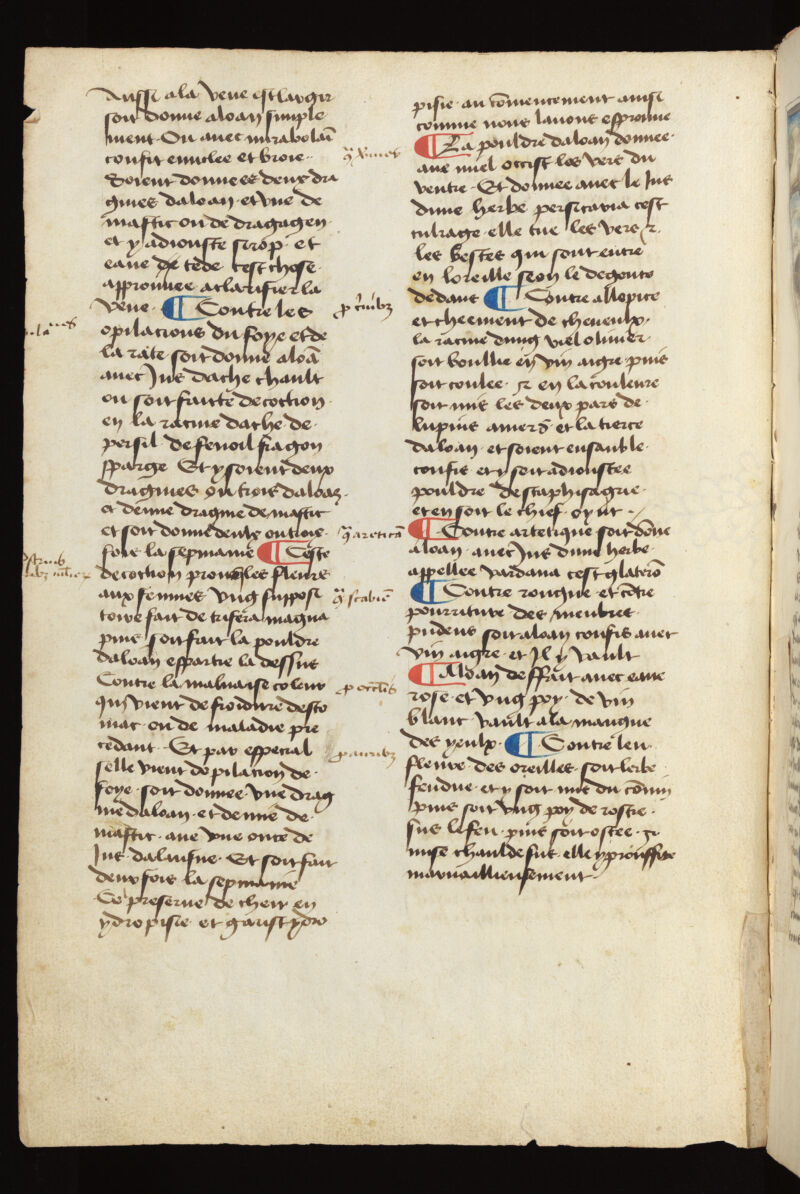 Aussi a la veue eslargir
soit donne aloan simple
ment. Ou avec mirabolā
confit emulee et broie.
Soient donnees deux dra
gmes daloan. et une de
mastic ou de dragagen
et y adiouste sirop. et
eaue tede cest chose.
approuuee a clarifier la
veue. ¶ Contre les
opilations du foye et de
la rate soit donne aloā
avec Jus dache chault
ou soit faicte decoction
en la racine dache de.
persil de fenoil fragon
sparge Et y soient deux
dragmes ou trois daloan.
et demie dragme de mastic
et soit donne deux ou trois.
fois la sepmaine ¶ Ceste
decoction prouo les fleurs
aux femmes vng supposi
toire fait de trifera magna
puis soit fait la pouldre
daloan espartie la dessus
Contre la mauuaise couleur
qui vient de froidure desto
mac. ou de maladie pre
cedant. Et par especial
selle vient dopilation de.
foye. soit donnee vne drag
me daloan. et demie de.
mastic. ave vne once de
Jus daluisne. Et soit fait
deux fois la sepmaine
Ce preserue de cheir en
ydropisie et garist ydro
pisie. au cōmencement ainsi
comme nous lauons esprouue
¶ La pouldre daloan donnee.
ave miel occist les vers du
ventre. Et donnee avec le Jus
dune herbe persicaria cest
culrage. elle tue les vers. ⁊.
les bestes qui sont entre
en loreille se on le degoute
dedans ¶ Contre allopice
et cheement de cheueulx.
la racine dung viel oliuier.
soit boullie en vin aigre. puis
soit coulee. ⁊ en la couleure
soit mis les deux pars de.
lupins amers et la tierce
daloan. et soient ensanble.
confis et y soit adioustee
pouldre de staphisagrie.
et en soit le chief oynt.
¶ Contre artetique soit dōne
aloan. avec Jus dune herbe.
appellee vardana cest glaterō
¶ Contre rongne et cōtre
pourriture des menbres
pudens soit aloan confis avec
vin aigre. et Il y vault
¶ Aloan deffait avec eaue
rose. et vng poy de vin
blanc vault a la mangue
des yeulx. ¶ Contre leu.
fleure. des oreilles. soit lerbe
fendue. et y soit mis du cōmin
puis soit vng poy de rostie.
sus le feu. puis soit ostee. ⁊
mise chaulde sus. elle y prouffite
meruailleusement.